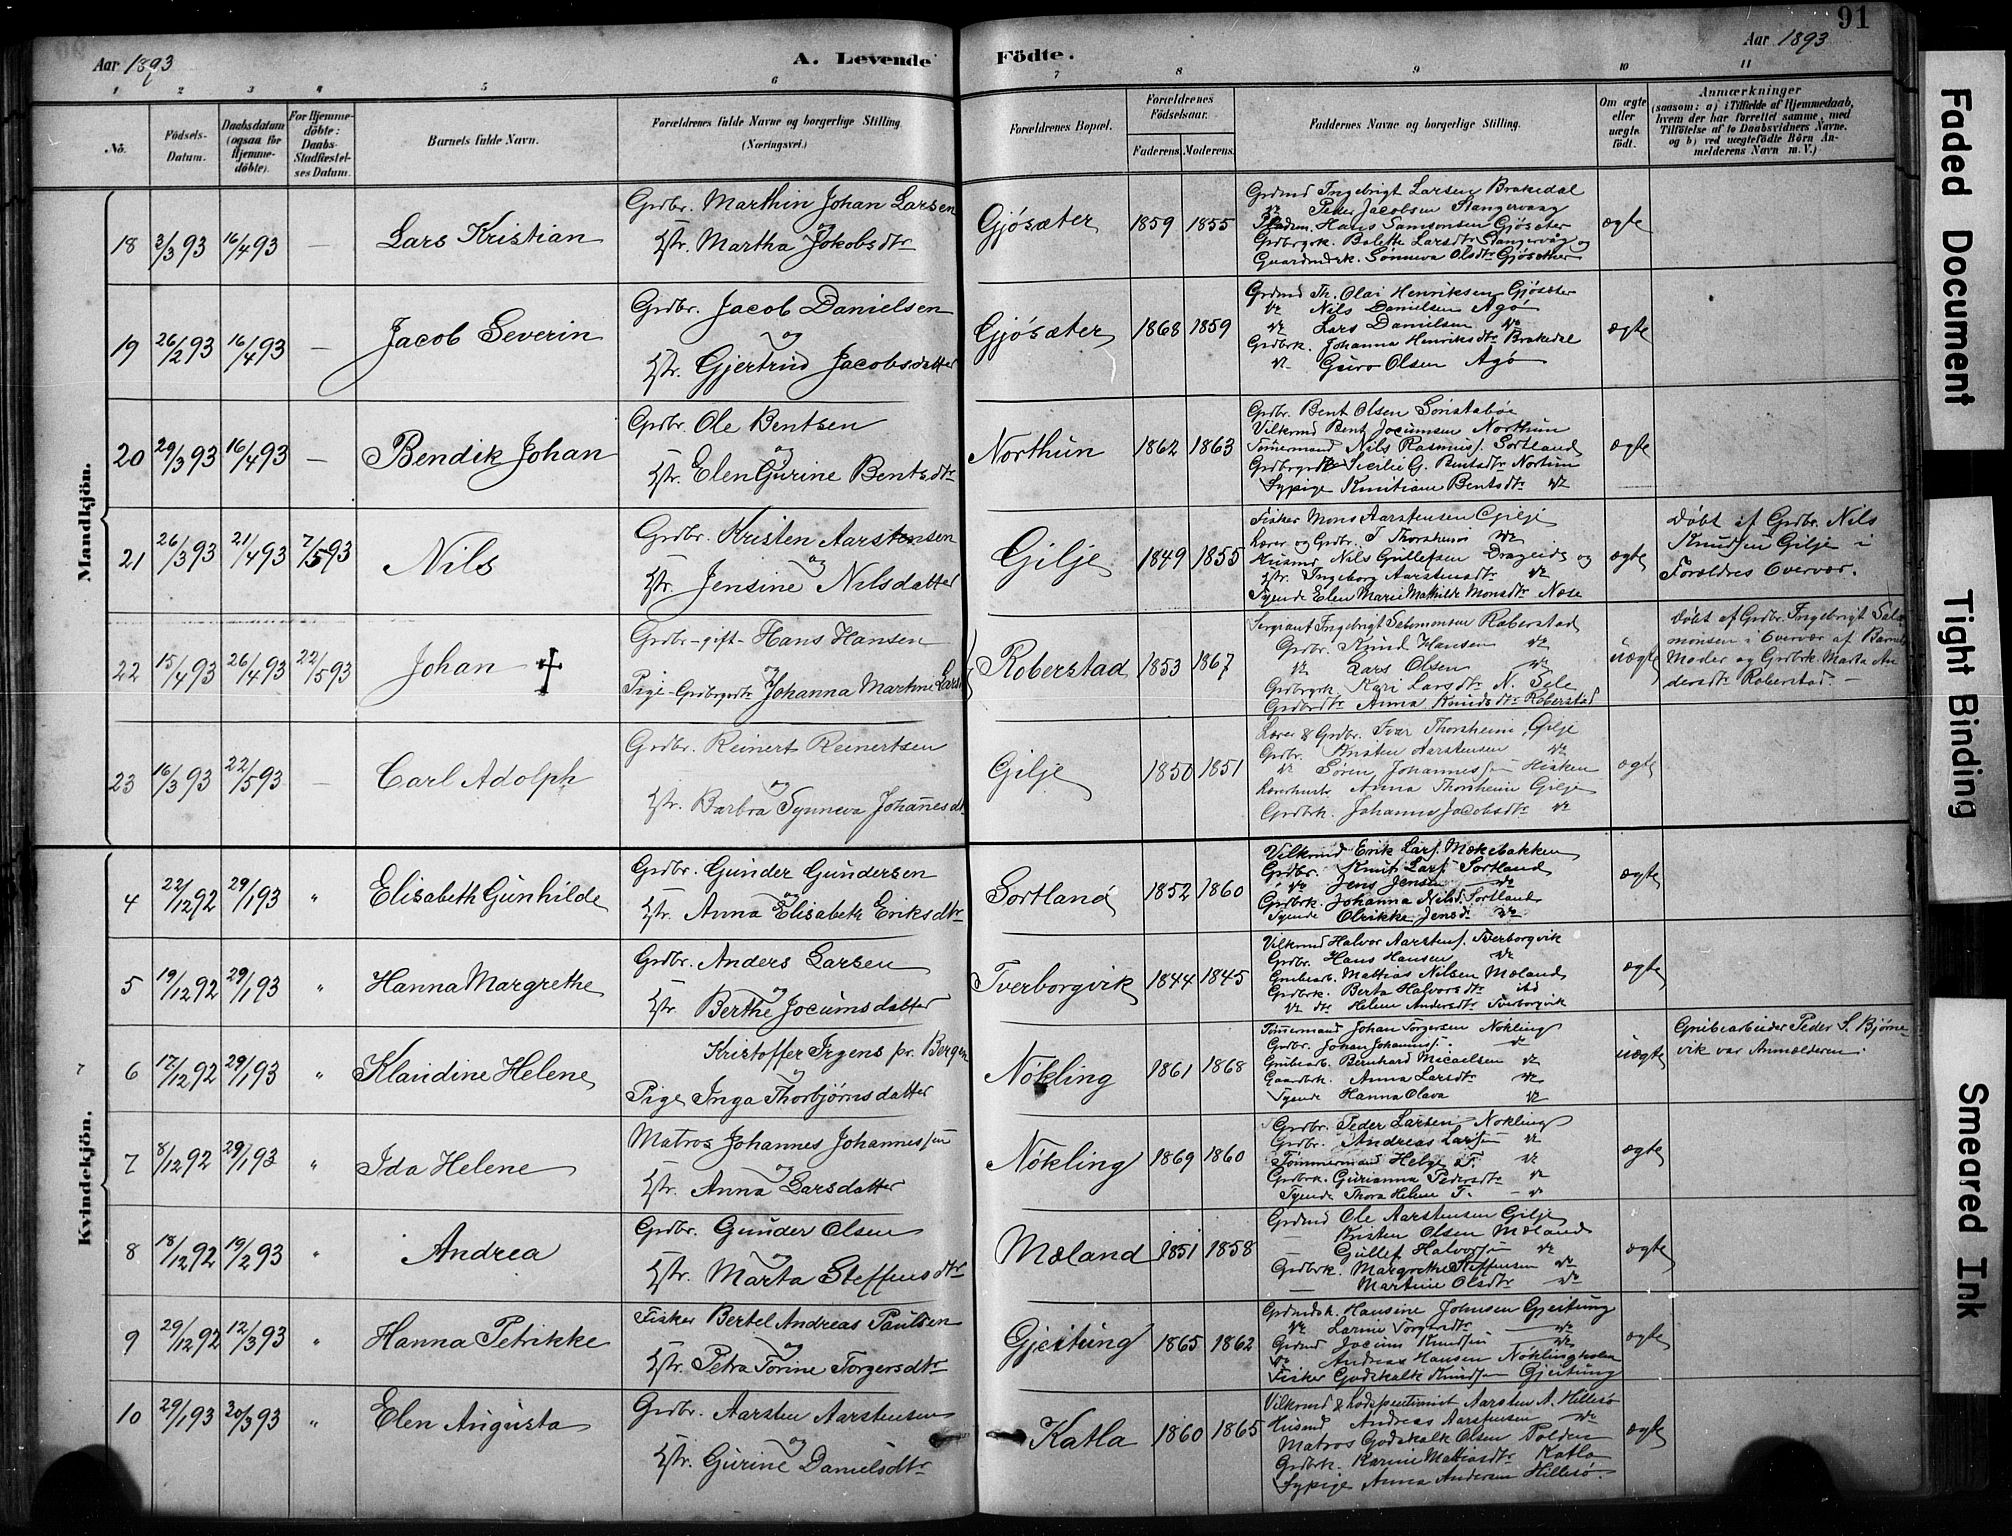 91
Aar 1893
A. Levende
Födte.
Aar 1893
1 2 3 4 5 6 7 8 9 10 11
No.
Födsels-Datum.
Daabsdatum (ogsaa for Hjemme-döbte).
For Hjemme-döbte: Daabs-Stadfæstel-ses Datum.
Barnets fulde Navn.
Forældrenes fulde Navne og borgerlige Stilling (Næringsvei.)
Forældrenes Bopæl.
Forældrenes Födselsaar.
Faderens. Moderens.
Faddernes Navne og borgerlige Stilling.
Om ægte eller uægte födt.
Anmærkninger
(saasom: a) i Tilfælde af Hjemmedaab, hvem der har forrettet samme, med Tilföielse af to Daabsvidners Navne. og b) ved uægtefödte Börn An-melderens Navn m. V.)
Mandkjön.
18 2/3 93 16/4 93 — Lars Kristian
Grdbr. Marthin Johan Larsen
og
Hstr. Martha Jokobsdtr
Gjøsæter 1859 1855
Grdmd Ingebrigt Larsen Brakedal
do Peder Jacobsen Stangervaag
Hans Samsonsen Gjøsæter
Grdbrgrk. Bolette Larsdtr Stangervåg og
Gaardmdsk. Sønneva Olsdtr Gjøsæther
ægte
19 26/2 93 16/4 93 — Jacob Severin
Grdbr. Jacob Danielsen
og
Hstr. Gjertrud Jacobsdatter
Gjøsæter 1868 1859
Grdmd Th. Olai Henriksen Gjøsæter
do Nils Danielsen Agø
do Lars Danielsen do
Grdbrk. Johanna Henriksdtr Brakedal
do Guro Olsen Agø
ægte
20 29/3 93 16/4 93 — Bendik Johan
Grdbr. Ole Bentsen
og
Hstr. Elen Gurine Bentsdtr
Northun 1862 1863
Grdbr. Bent Olsen Sønstabøe
Vilkrmd Bent Jocumsen Northun
Tømermand Nils Rasmusf. Sortland
Cecilie G. Bentsdtr Nortun
Sypige Kristiane Bentsdtr do
ægte
21 26/3 93 21/4 93 7/5 93 Nils
Grdbr. Kristen Aarstensen
og
Hstr. Jensine Nilsdatter
Gilje 1849 1855
Fisker Mons Aarstensen Gilje
Lærer og Grdbr. I Thorsheim do
Husmd Nils Gullefsen Drageide og
Hstr. Ingeborg Aarstensdtr do
Tyende Elen Marie Mathilde Monsdtr Næse
ægte
Døbt af Grdbr. Nils
Knudsen Gilje i
Foreldres Overvær.
22 15/4 93 26/4 93 22/5 93 Johan ✝
Grdbr-gift- Hans Hansen
og
Pige- Johanna Martine Larsd
Roberstad 1853 1867
Sergeant Ingebrigt Salomonsen Roberstad
Grdbr. Knud Hansen do
do Lars Olsen do
Grdbrgrk. Kari Larsdtr N. Sele
Grdbrdtr Anna Knudsdtr Roberstad
uægte
Døbt af Grdbr. Ingebrigt Salo-
monsen i Overvær af Barnets
Moder og Grdbrk. Marta An-
dersdtr Roberstad. —
23 16/3 93 22/5 93 — Carl Adolph
Grdbr. Reinert Reinertsen
og
Hstr. Barbra Synneva Johannesdtr
Gilje 1850 1851
Lærer & Grdbr. Ivar Thorsheim Gilje
Grdbr. Kristen Aarstensen do
do Søren Johannesen Hisken
Anna Thorsheim Gilje
Grdbrk. Johanna Jacobsdtr do
ægte
Kvindekjön.
4 22/12 92 29/1 93 " Elisabeth Gunhilde
Grdbr. Gunder Gundersen
og
Hstr. Anna Elisabeth Eriksdtr
Sortland 1852 1860
Vilkrmd Erik Larsf. Mækebakken
Grdbr. Knut Larsf. Sortland
do Jens Jensen do
Grdbrk. Johanna Nilsd. Sortland
Tyende Olrikke Jensd. do
ægte
5 19/12 92 29/1 93 " Hanna Margrethe
Grdbr. Anders Larsen
og
Hstr. Berthe Jocumsdatter
Tverborgvik 1844 1845
Vilkrmd Halvor Aarstensf. Tverborgvik
Grdbr. Hans Hansen do
Grubearb. Mattias Nilsen Mæland
Grdbrk. Berta Halvorsdtr ibd
do dtr Helene Andersdtr Tverborgvik
ægte
6 17/12 92 29/1 93 " Klaudine Helene
Kristoffer Irgens pr. Bergen
og
Pige Inga Thorbjørnsdatter
Nøkling 1861 1868
Tømmermand Johan Torgersen Nøkling
Grdbr. Johan Johannesf. do
Grubearb. Bernhard Micaelsen do
Gaardbrk. Anna Larsdtr do
Tyende Hanna Olava do
uægte
Grubearbeider Peder S. Bjørne-
vik var Anmælderen.
7 8/12 92 29/1 93 " Ida Helene
Matros Johannes Johannessen
og
Hstr. Anna Larsdatter
Nøkling 1869 1860
Grdbr. Peder Larsen Nøkling
Grdbr. Andreas Larsen do
Tømmermand Helge T. do
Grdbrk. Gurianna Pedersdtr do
Tyende Thora Helene T. - do
ægte
8 18/12 92 19/2 93 " Andrea
Grdbr. Gunder Olsen
og
Hstr. Marta Steffensdtr
Mæland 1851 1858
Grdmd Ole Aarstensen Gilje
— Kristen Olsen Mæland
— Gullef Halvorsen do
Grdbrk. Margrethe Steffensen do
— Martine Olsdtr do
ægte
9 29/12 92 12/3 93 " Hanna Petrikke
Fisker Bertel Andreas Paulsen
og
Hstr. Petra Torine Torgersdtr
Gjeitung 1865 1862
Grdmdsk. Hansine Johnsen Gjeitung
do Larine Torgersdtr do
Grdmd Jocum Knudsen do
do Andreas Hansen Nøklingholm
Fisker Godskalk Knudsen Gjeitung
ægte
10 29/1 93 30/3 93 " Elen Augusta
Grdbr. Aarsten Aarstensen
og
Hstr. Gurine Danielsdtr
Katla 1860 1865
Vilkrmd & Aarsten A. Hillesø
Husmd Andreas Aarstensen do
Matros Godskalk Olsen Folden
Grdbrk. Karine Mattiasdtr Katla
Sypige Anna Andersen Hillesø.
ægte
Faded Document
Tight Binding
Smeared Ink